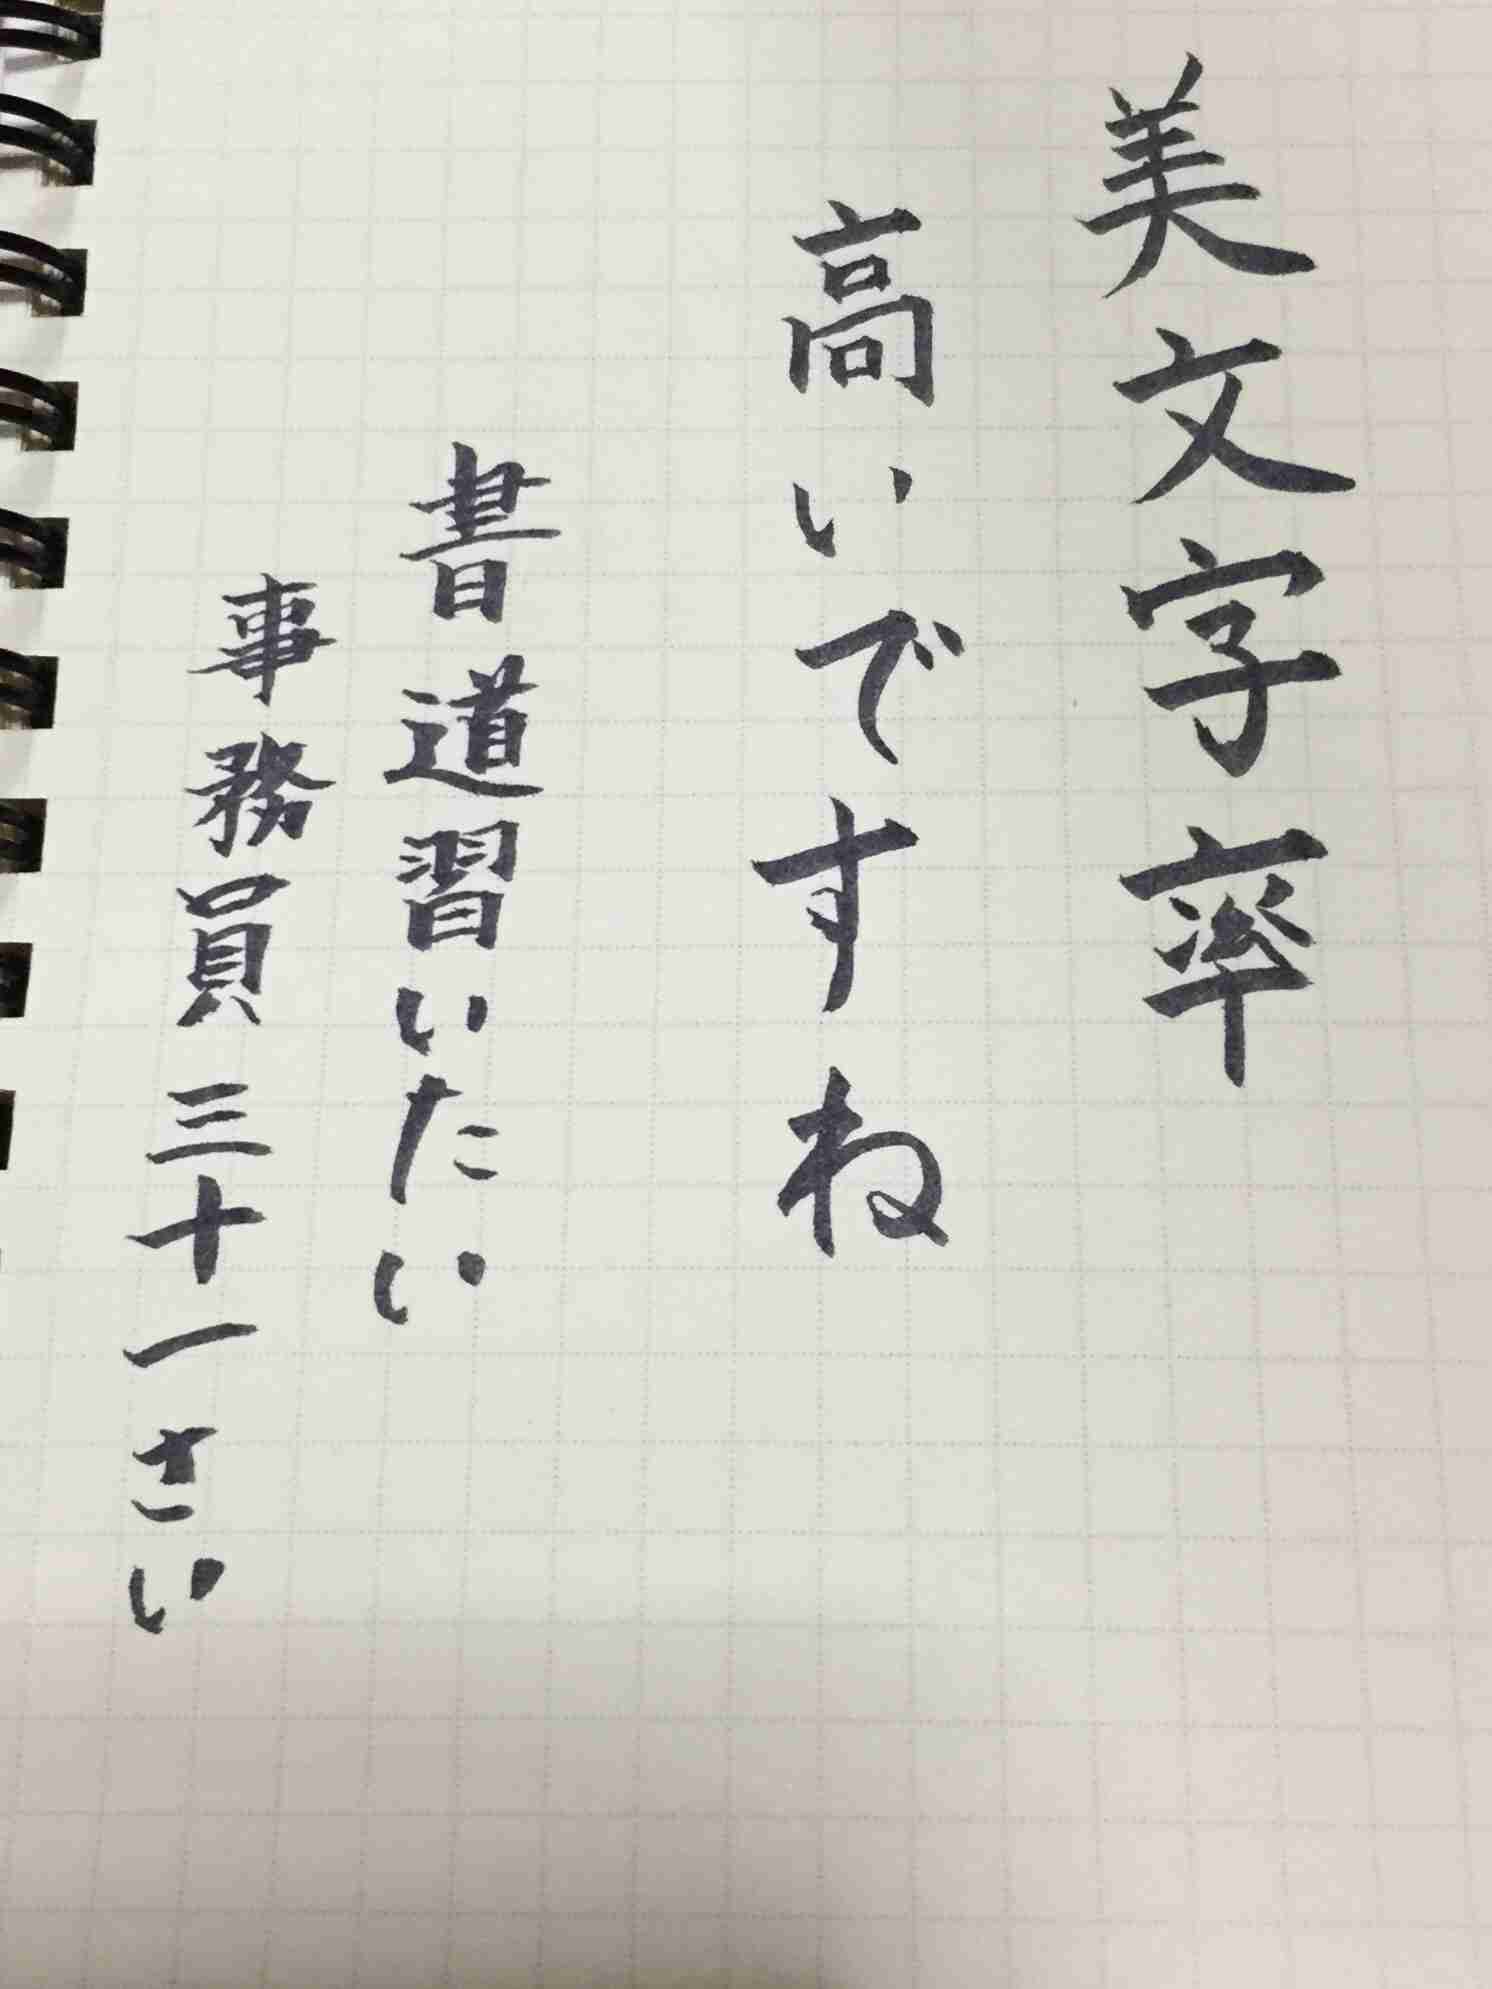 美文字率
高いですね
書道習いたい
事務員三十一さい